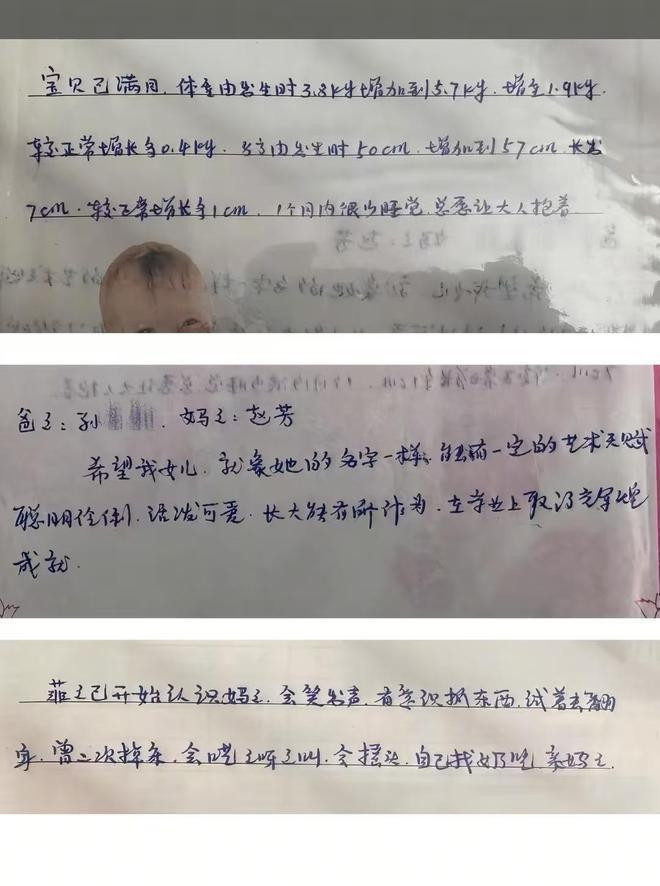 宝贝已满月，体重由出生时3.8kg增加到5.7kg，增重1.9kg，
较正常增长多0.4kg，身高由出生时50cm，增加到57cm，长出
7cm，较正常增长多1cm，1个月内很少睡觉，总愿让大人抱着
爸々：孙 妈々：赵芳
希望我女儿，就象她的名字一样，能有一定的艺术天赋
聪明伶俐，活泼可爱，长大能有所作为，在学业上取得
成就．
菲々已开始认识妈々，会笑出声，有意识抓东西，试着去翻
身，曾二次掉床，会哎々呀々叫，会摇头，自己找奶吃，亲妈々．